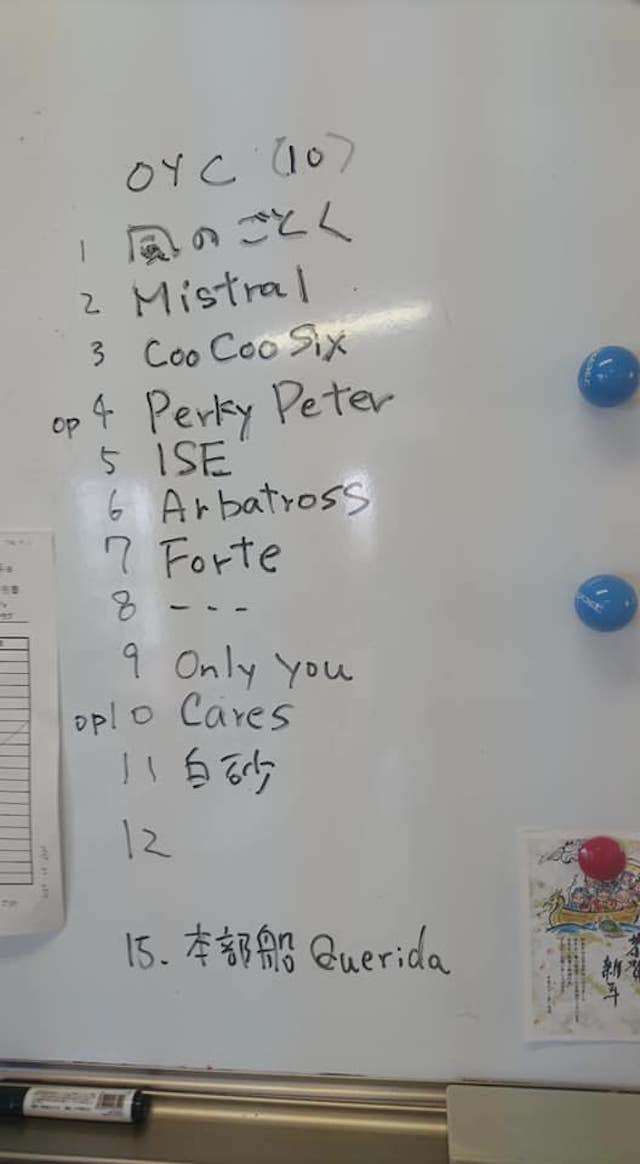 OYC (10)
1 風のごとく
2 Mistral
3 CooCoo Six
op 4 Perky Peter
5 ISE
6 Arbatross
7 Forte
8 ---
9 Only you
op 10 Cares
11 白砂
12
15. 本部船 Querida
恭賀
新年